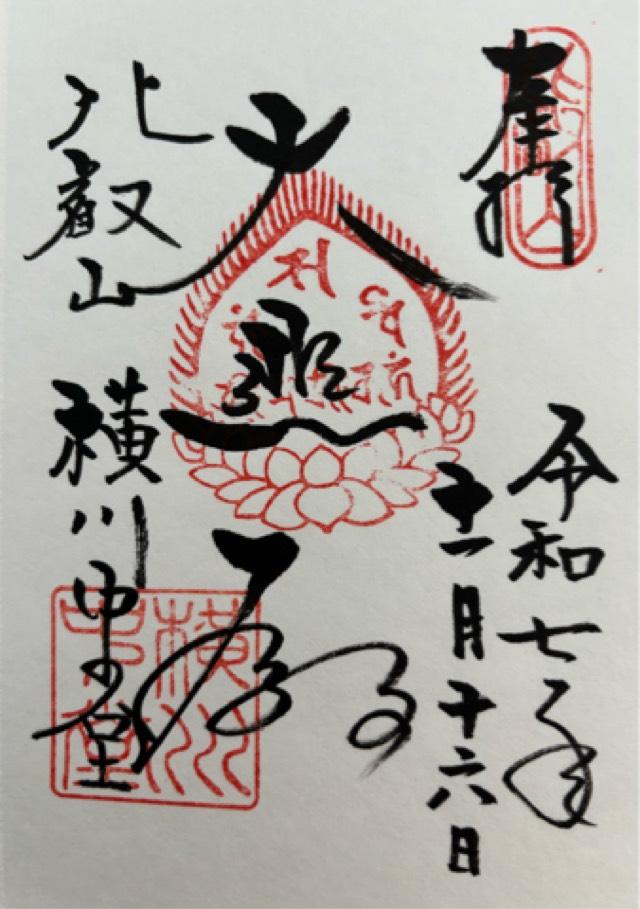 奉拝
令和七年
十一月十六日
大悲殿
比叡山 横川中堂
横川
中堂